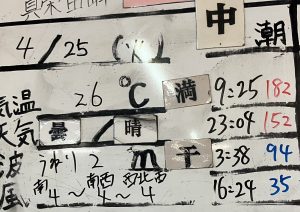 中 潮
4/25 (火)
気温 26℃ 満 9:25 182
天気 曇/晴 23:04 152
波 うねり 2 m 干 3:38 94
風 南 4 〜 南西 4 〜 西北西 4 16:24 35